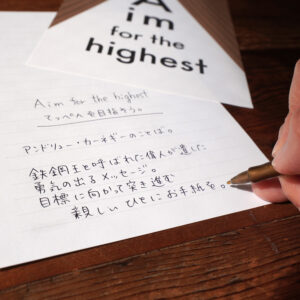 A
im
for the
highest
Aim for the highest
てっぺんを目指そう。
アンドリュー・カーネギーのことば。
鉄鋼王と呼ばれた偉人が遺した
勇気の出るメッセージ。
目標に向かって突き進む
親しいひとにお手紙を。